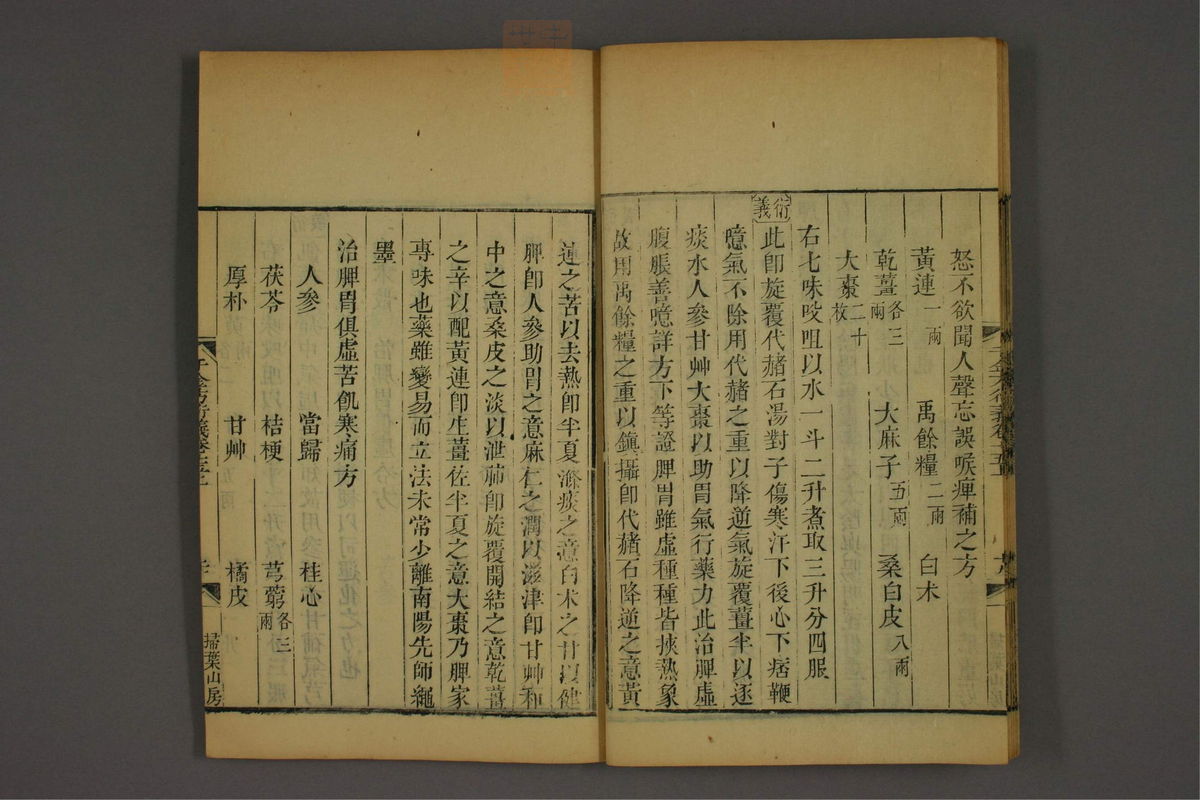 怒不欲聞人聲忘誤喉痺補之方
黃連一兩 禹餘糧二兩 白朮
乾薑各三兩 大麻子五兩 桑白皮八兩
大棗二十枚
右七味㕮咀以水一斗二升煮取三升分四服
衍義
此卽旋覆代赭石湯對子傷寒汗下後心下痞鞕
噫氣不除用代赭之重以降逆氣旋覆薑半以逐
痰水人參甘艸大棗以助胃氣行藥力此治脾虛
腹脹善噫詳方下等證脾胃雖虛種種皆挾熱象
故用禹餘糧之重以鎭攝卽代赭石降逆之意黃
連之苦以去熱卽半夏滌痰之意白朮之甘以健
脾卽人參助胃之意麻仁之潤以滋津卽甘艸和
中之意桑皮之淡以泄肺卽旋覆開結之意乾薑
之辛以配黃連卽生薑佐半夏之意大棗乃脾家
專味也藥雖變易而立法未常少離南陽先師繩
墨
治脾胃俱虛苦飢寒痛方
人參 當歸 桂心
茯苓 桔梗 芎藭各三兩
厚朴 甘艸 橘皮
掃葉山房